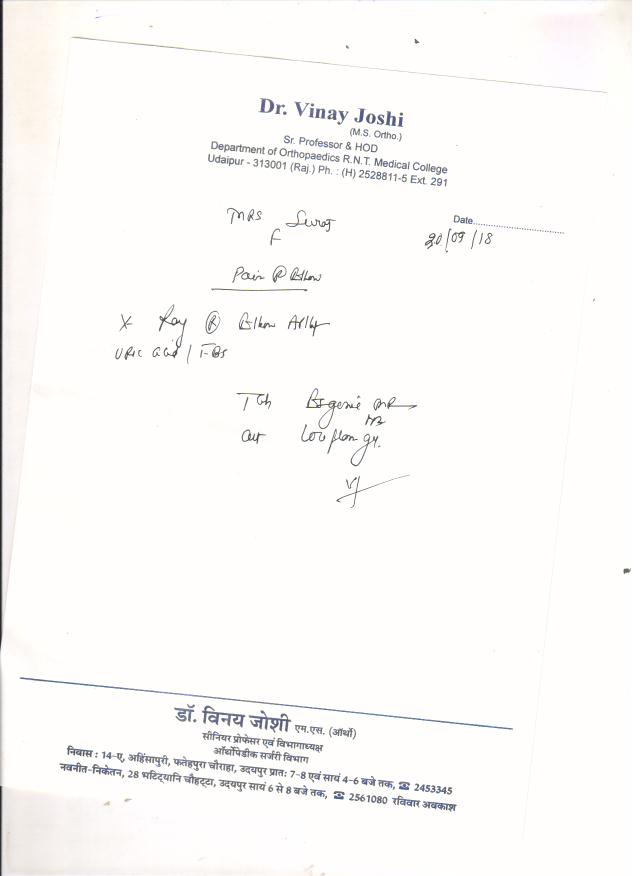 Dr. Vinay Joshi
(M.S. Ortho.)
Sr. Professor & HOD
Department of Orthopaedics R.N.T. Medical College
Udaipur - 313001 (Raj.) Ph. : (H) 2528811-5 Ext. 291
MRS Suraj
F
Date
20/09/18
Pain R Elbow
X-Ray R Elbow
Uric acid /
Tab
डॉ. विनय जोशी एम.एस. (ऑर्थो)
सीनियर प्रोफेसर एवं विभागाध्यक्ष
ऑर्थोपेडीक सर्जरी विभाग
निवास : 14-ए, अहिंसापुरी, फतेहपुरा चौराहा, उदयपुर प्रात: 7-8 एवं सायं 4-6 बजे तक, ☎ 2453345
नवनीत-निकेतन, 28 भटि्यानि चौहट्टा, उदयपुर सायं 6 से 8 बजे तक, ☎ 2561080 रविवार अवकाश